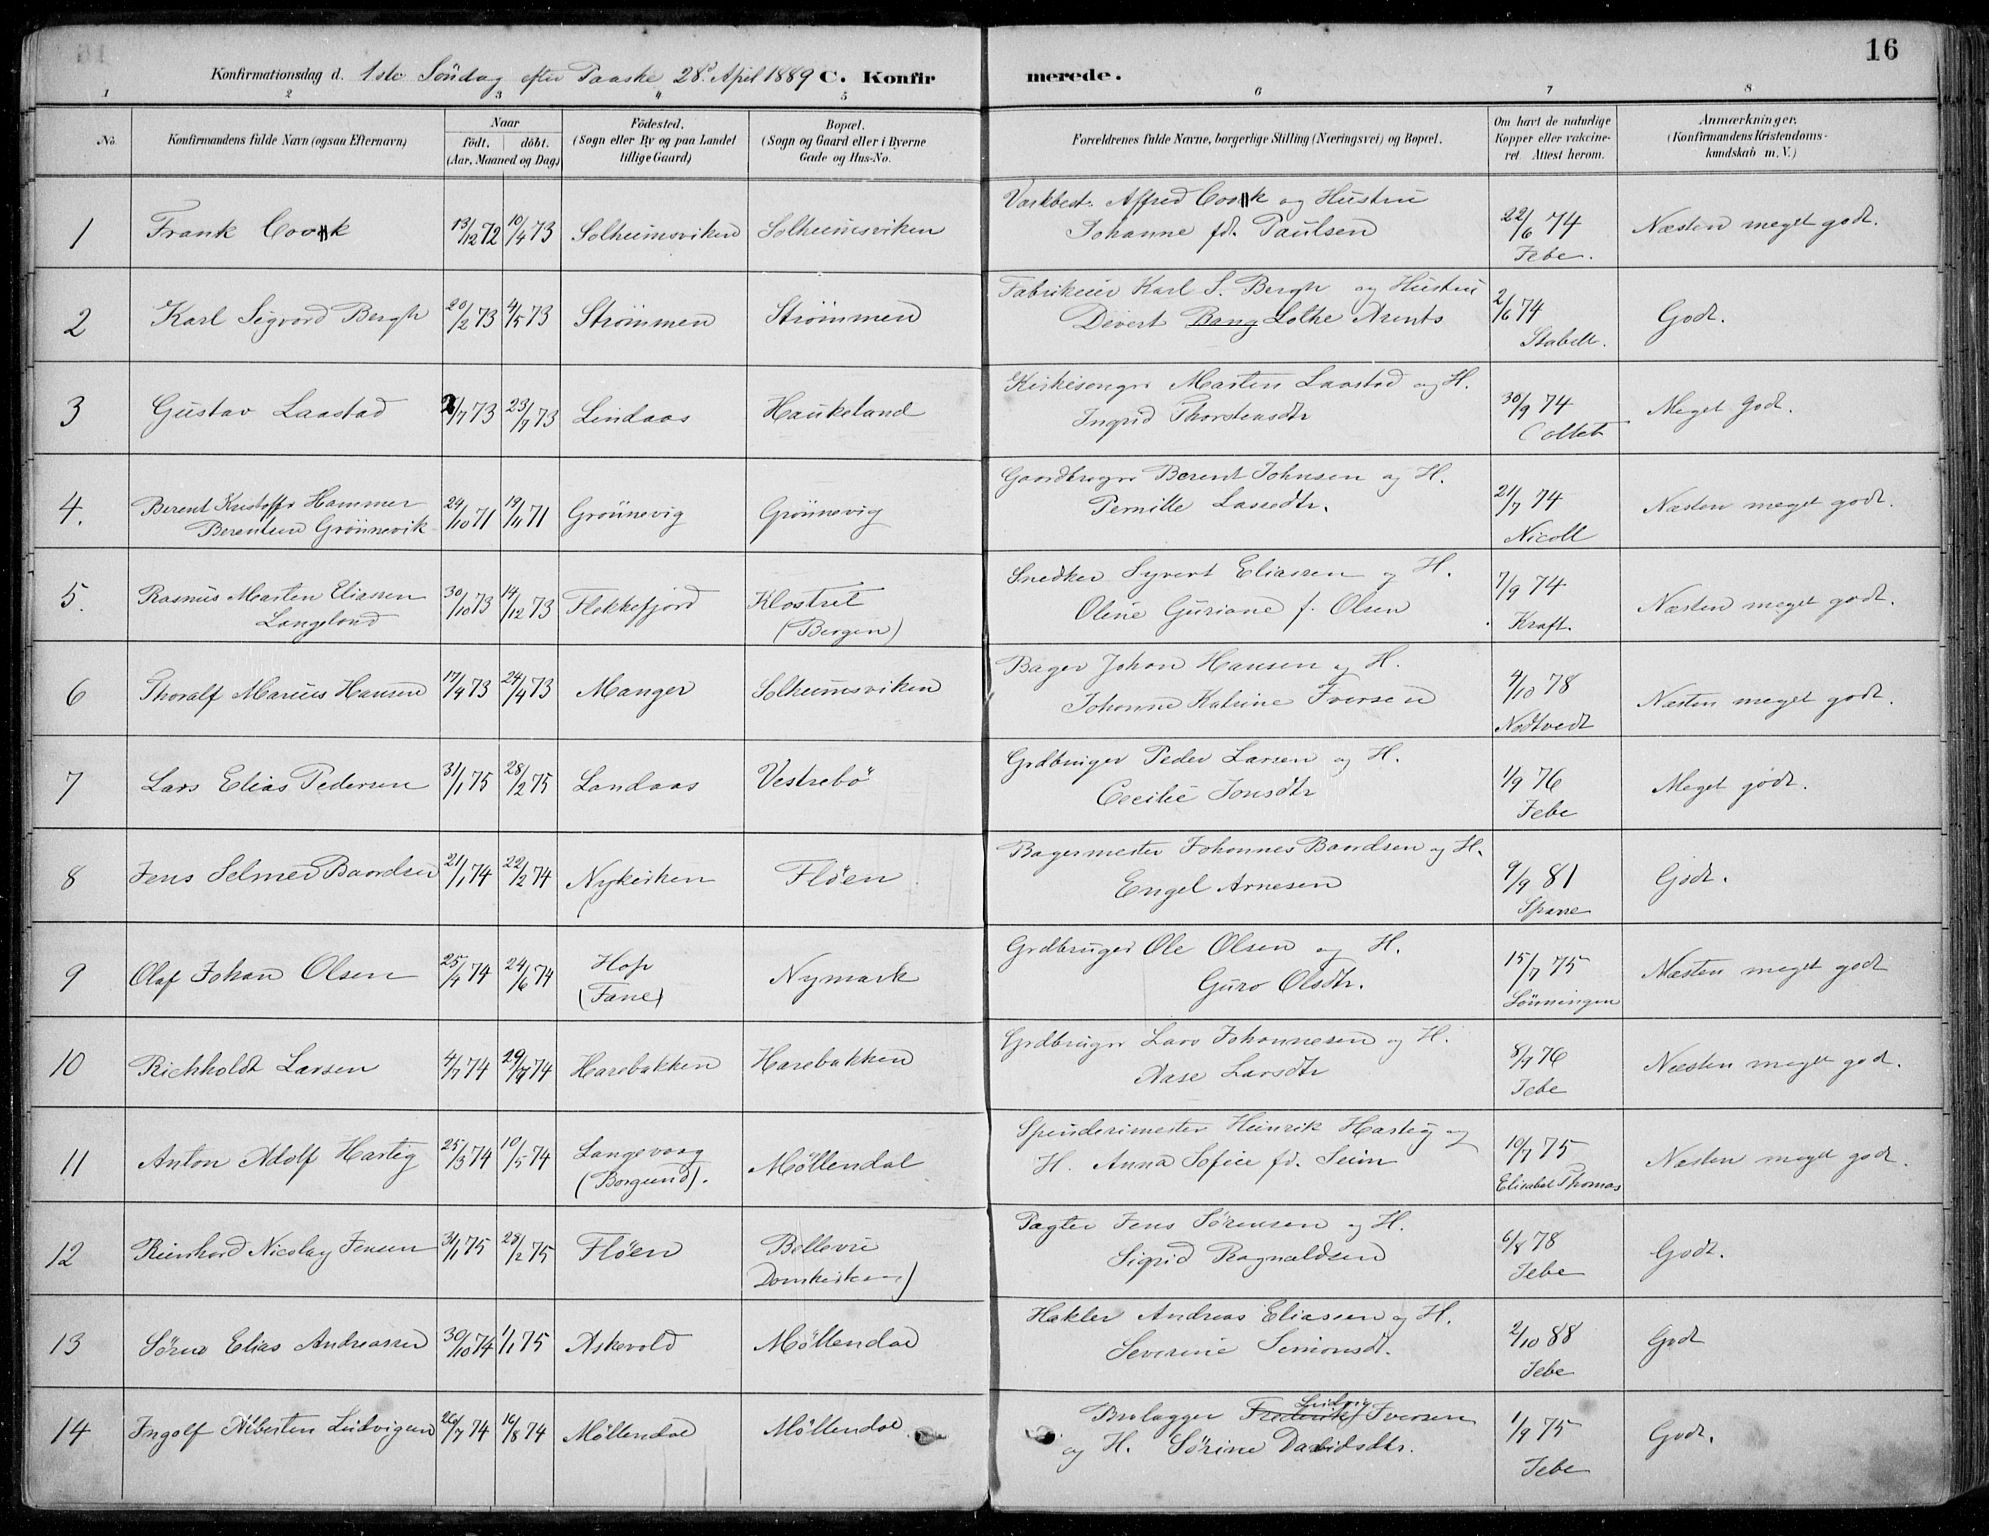 16
Konfirmationsdag d. 1ste Söndag efter Paaske 28de April 1889 C. Konfirmerede.
1 2 3 4 5 6 7 8
No. Konfirmandens fulde Navn (ogsaa Efternavn) Naar födt, döbt. (Aar, Maaned og Dag) Födested. (Sogn eller By og paa Landet tillige Gaard) Bopæl. (Sogn og Gaard eller i Byerne Gade og Hus-No. Forældrenes fulde Navne, borgerlige Stilling (Næringsvei) og Bopæl. Om havt de naturlige Kopper eller vakcineret. Attest herom. Anmærkninger. (Konfirmandens Kristendomskundskab m. V.)
1 Frank Cook 13/12 72 10/4 73 Solheimsviken Solheimsviken Værkbest. Alfred Cook og Hustru
Johanne fd. Paulsen 22/6 74 Jebe. Næsten meget godt.
2 Karl Sigvard Bergh 20/2 73 4/5 73 Strömmen Strömmen Fabrikeier Karl S. Bergh og Hustru
Divert Bang Lothe Arents 2/6 74 Stabell. Godt.
3 Gustav Laastad 2/7 73 23/7 73 Lindaas Haukeland Kirkesanger Marten Laastad og H.
Ingrid Thorstensdtr 30/9 74 Collet Meget Godt.
4. Berent Kristoffer Hammer
Berentsen Grönnevik 24/10 71 19/11 71 Grönnevig Grönnevig Gaardbruger Berent Johnsen og H.
Pernille Lassedtr. 21/7 74 Nicoll Næsten meget godt.
5. Rasmus Marten Eliassen
Langeland 30/10 73 14/12 73 Flekkefjord Klostret
(Bergen) Snedker Syvert Eliassen og H.
Oline Guriane f. Olsen 7/9 74 Kraft. Næsten meget godt.
6 Thoralf Marius Hansen 17/4 73 24/4 73 Manger Solheimsviken Bager Johan Hansen og H.
Johanne Katrine Iversen 4/10 78 Nodtvedt Næsten meget godt.
7 Lars Elias Pedersen 31/1 75 28/2 75 Landaas Vestrebö Grdbruger Peder Larsen og H.
Cecilie Jonsdtr 1/9 76 Jebe Meget godt.
8 Jens Selmer Baardsen 21/1 74 22/2 74 Nykirken Flöen Bagermester Johannes Baardsen og H.
Engel Arnesen 9/9 81 Sparre Godt.
9 Olaf Johan Olsen 25/4 74 24/6 74 Hop
(Fane) Nymark Grdbruger Ole Olsen og H.
Guro Olsdtr. 15/7 75 Lönningen Næsten meget godt
10 Richholdt Larsen 4/7 74 29/7 74 Harebakken Harebakken Grdbruger Lars Johannesen og H.
Aase Larsdtr 8/9 76 Jebe Næsten meget godt.
11 Anton Adolf Hartig 25/3 74 10/5 74 Langevaag
(Borgund). Möllendal Spinderimester Heinrik Hartig og
H. Anna Sofie fd. Seim 10/7 75 Elisabet Thomas Næsten meget godt.
12 Reinhard Nicolay Jensen 31/1 75 28/2 75 Flöen Bellevue
Domkirken) Pagter Jens Sörensen og H.
Sigrid Ragnaldsen 6/8 78 Jebe Godt.
13 Sören Elias Andreassen 30/10 74 1/1 75 Askevold Möllendal Hekler Andreas Eliassen og H.
Severine Simonsdt. 2/10 88 Jebe Godt
14 Ingolf Albertin Ludvigsen 26/7 74 16/8 74 Möllendal Möllendal Brolægger Frederik Ludvig Iversen
og H. Sörine Davidsdtr. 1/9 75 Jebe Godt.